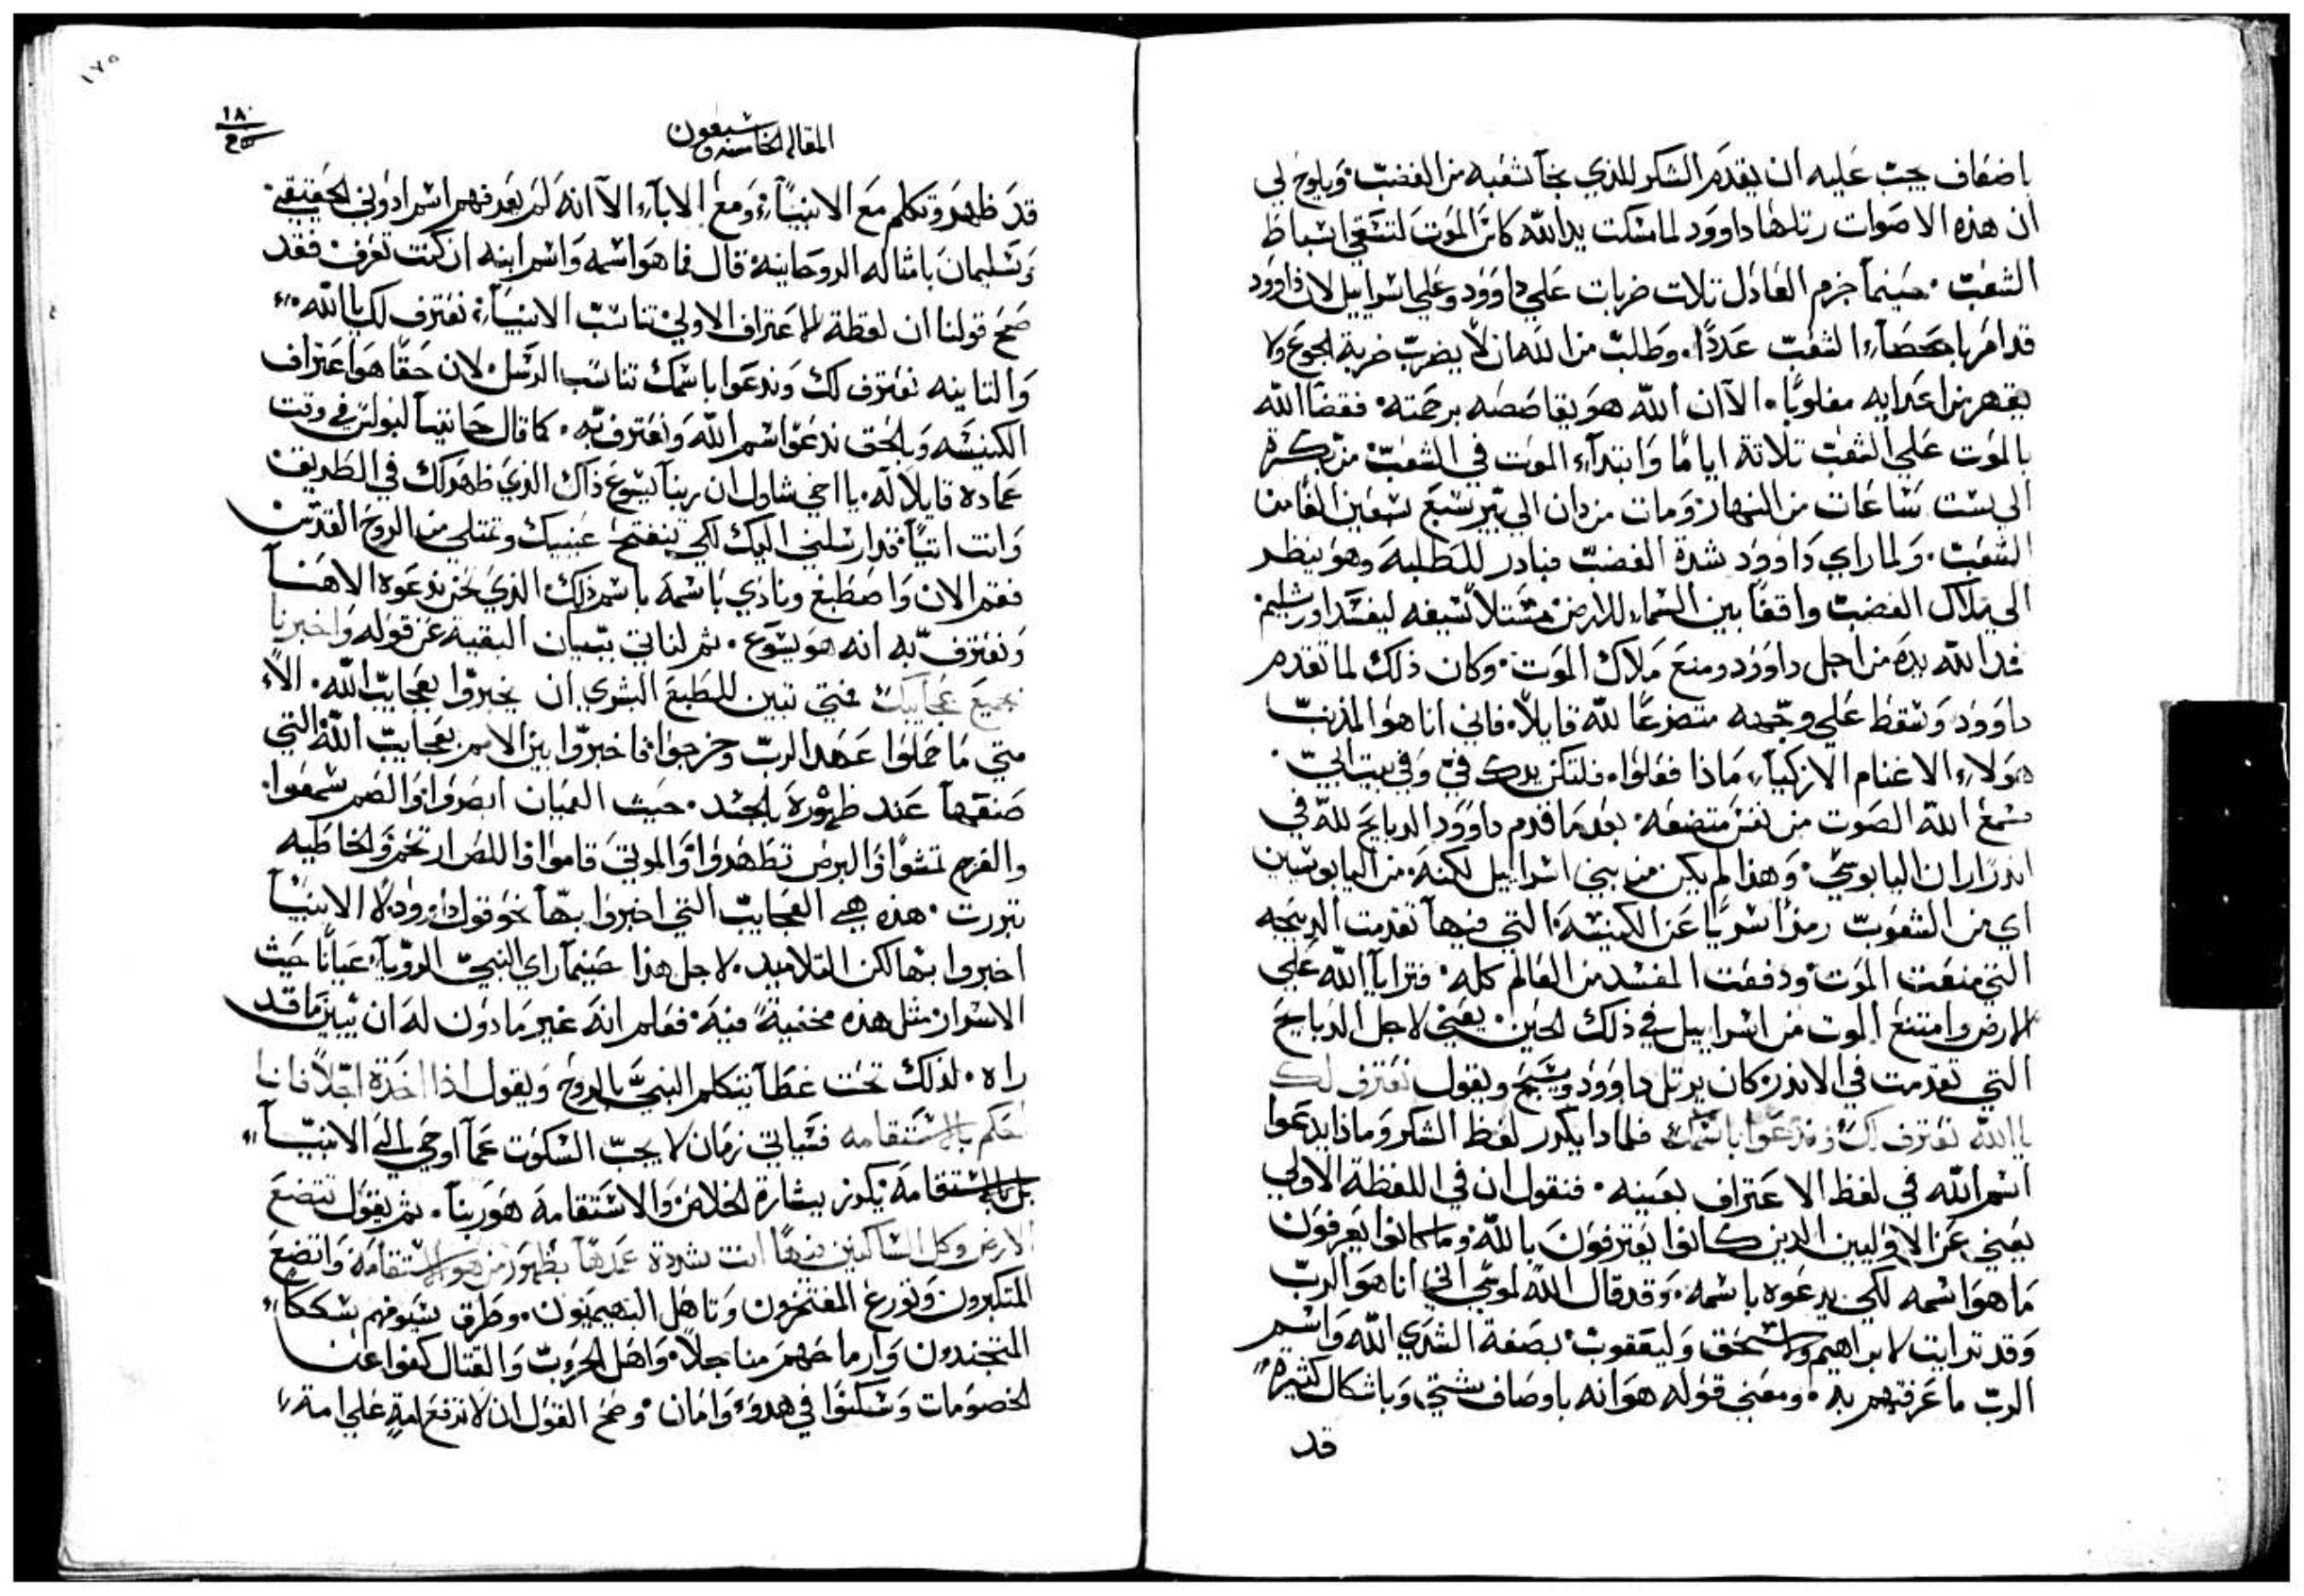 باضعاف يجب عليه ان يقدم الشكر للذي نجا شعبه من الغضب. ويلوح لي
ان هذه الاصوات رتلها داوود لما مسكت يد الله كاس الموت لتسقي اسباط
الشعب. حينما جزم العادل تلات ضربات علي داوود وعلي اسراييل لان داوود
قد امر باحصاء الشعب عددًا. وطلب من الله ان لا يضرب ضربة الجوع ولا
يقهر من اعدايه مغلوبًا. الا ان الله هو يقاصصه برحمته. فقضا الله
بالموت علي الشعب تلاتة ايامًا وابتداء الموت في الشعب من بكرة
الي ست ساعات من النهار. ومات من دان الي بير سبع سبعين الفًا من
الشعب. ولما راي داوود شدة الغضب فبادر للطلبة وهو ينظر
الي ملاك الغضب واقفًا بين السماء للارض مستلاً سيفه ليفسد اورشليم
فمد الله يده من اجل داوود ومنع ملاك الموت. وكان ذلك لما تقدم
داوود وسقط علي وجهه متضرعًا لله قايلاً. فاني انا هو المذنب
هولاء الاغنام الازكياء ماذا فعلوا. فلتكن يدك في وفي بيت ابي.
فسمع الله الصوت من نفس متضعه. بعد ما قدم داوود الدبايح لله في
اندر اران اليابوسي. وهذا لم يكن من بني اسراييل لكنه من اليابوسيين
اي من الشعوب رمزًا سريًا عن الكنيسة التي فيها تقدمت الدبيحه
التي منعت الموت ودفعت المفسد من العالم كله. فترايا الله علي
الارض وامتنع الموت من اسراييل في ذلك الحين. يعني لاجل الدبايح
التي تقدمت في الاندر. كان يرتل داوود ويسبح ويقول نعترف لك
يا الله نعترف لك وندعوا باسمك فلمادا يكرر لفظ الشكر وماذا يدعوا
اسم الله في لفظ الاعتراف بعينه. فنقول ان في اللفظة الاولي
يعني عن الاوليين الدين كانوا يعترفون بالله وما كانوا يعرفون
ما هو اسمه لكي يدعوه باسمه. وقد قال الله لموسي اني انا هو الرب
وقد ترايت لابراهيم ولاسحق وليعقوب بصفة الشدي الله واسم
الرب ما عرفتهم به. ومعني قوله هو انه باوصاف شتي وباشكال كثيرة
قد
١٧٥
١٨٠
المقاله الخامسه وسبعون
قد ظهر وتكلم مع الانبياء ومع الاباء. الا انه لم يعد فهم اسم ادوني الحقيقي
وسليمان بامثاله الروحانيه قال فما هو اسمه واسم ابنه ان كنت تعرف فقد
صح قولنا ان لفظة الاعتراف الاولي تناسب الانبياء. نعترف لك يا الله
والتانيه نعترف لك وندعوا باسمك تناسب الرسل. لان حقًا هو اعتراف
الكنيسه وبالحق ندعوا اسم الله ونعترف به. كما قال حانيا لبولس في وقت
عماده قايلاً له. يا اخي شاول ان ربنا يسوع ذاك الذي ظهر لك في الطريق
وانت اتيًا. قد ارسلني اليك لكي تنفتح عينيك وتمتلي من الروح القدس
فقم الان واصطبغ ونادي باسمه باسم ذلك الذي نحن ندعوه الاهنا
ونعترف به انه هو يسوع. ثم لناتي ببيان البقية عن قوله واخبرنا
بجميع عجايبك فمتي تبين للطبع البشري ان يخبروا بعجايب الله. الا
متي ما حملوا عهد الرب وخرجوا فاخبروا بين الامم بعجايب الله التي
صنعها عند ظهوره بالجسد. حيث العميان ابصروا والصم سمعوا.
والعرج تمشوا والبرص تطهروا والموتي قاموا واللص ارتحم والخاطيه
تبررت. هذه هي العجايب التي اخبروا بها نحو قول داوود لا الانبيا
اخبروا بها لكن التلاميد. لاجل هذا حينما راي النبي الرويا عيانًا حيث
الاسرار مثل هذه مخفية فيه. فعلم انه غير مادون له ان يبين ما قد
راه. لذلك تحت غطا يتكلم النبي بالروح ويقول اذا اخذة اجلاً فانا
احكم بالاستقامه فسياتي زمان لا يجب السكوت عما اوحي الي الانبيا
بل بالاستقامة يكرز ببشارة الخلاص والاستقامة هو ربنا. ثم يقول تتضع
الارض وكل الساكنين فيها انت شددة عمدها بظهور من هو الاستقامة واتضع
المتكبرون وتورع المفتخرون وتاهل البهيميون. وطرق سيوفهم سككًا
المتجندون وارماحهم مناجلاً. واهل الحروب والقتال كفوا عن
الخصومات وسكنوا في هدوء وامان. وصح القول ان لا ترفع امة علي امة